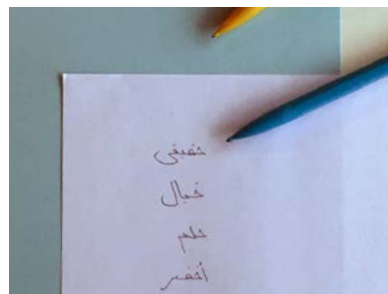 حقيقي
خيال
حلم
أخضر